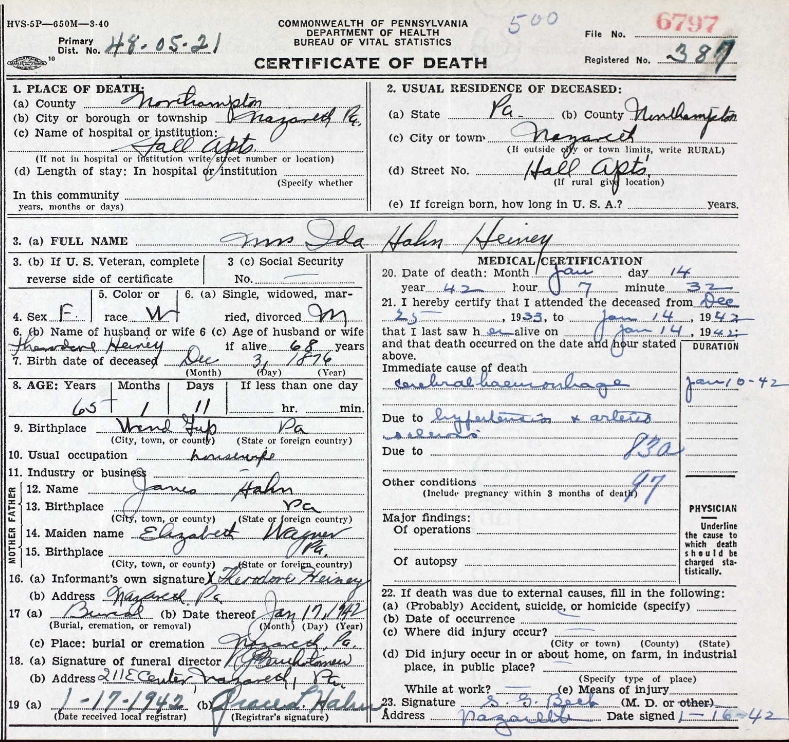 HVS-5P—650M—3-40
COMMONWEALTH OF PENNSYLVANIA
DEPARTMENT OF HEALTH
BUREAU OF VITAL STATISTICS
CERTIFICATE OF DEATH
500
File No. 6797
Registered No. 387
Primary
Dist. No. 48-05-21
1. PLACE OF DEATH:
(a) County Northampton
(b) City or borough or township Nazareth Pa.
(c) Name of hospital or institution:
Hall Apts.
(If not in hospital or institution write street number or location)
(d) Length of stay: In hospital or institution
(Specify whether
In this community
years, months or days)
2. USUAL RESIDENCE OF DECEASED:
(a) State Pa. (b) County Northampton
(c) City or town Nazareth
(If outside city or town limits, write RURAL)
(d) Street No. Hall Apts.
(If rural give location)
(e) If foreign born, how long in U. S. A.? years.
3. (a) FULL NAME Mrs Ida Hahn Heiney
3. (b) If U. S. Veteran, complete
reverse side of certificate
3 (c) Social Security
No. —
4. Sex F.
5. Color or
race W
6. (a) Single, widowed, mar-
ried, divorced M
6. (b) Name of husband or wife 6 (c) Age of husband or wife
Theodore Heiney if alive 68 years
7. Birth date of deceased Dec 3, 1876
(Month) (Day) (Year)
8. AGE: Years Months Days If less than one day
65 1 11 hr. min.
9. Birthplace Wind Gap Pa
(City, town, or county) (State or foreign country)
10. Usual occupation housewife
11. Industry or business
FATHER
12. Name James Hahn
13. Birthplace Pa
(City, town, or county) (State or foreign country)
MOTHER
14. Maiden name Elizabeth Wagner
15. Birthplace Pa.
(City, town, or county) (State or foreign country)
16. (a) Informant's own signature X Theodore Heiney
(b) Address Nazareth, Pa
17 (a) Burial (b) Date thereof Jan 17, 1942
(Burial, cremation, or removal) (Month) (Day) (Year)
(c) Place: burial or cremation Nazareth, Pa.
18. (a) Signature of funeral director Bartholomew
(b) Address 211 E Center, Nazareth, Pa.
19 (a) 1-17-1942 (b) Grace L. Hahn
(Date received local registrar) (Registrar's signature)
MEDICAL CERTIFICATION
20. Date of death: Month Jan day 14
year 42 hour 7 minute 32
21. I hereby certify that I attended the deceased from Dec
25, 1933, to Jan 14, 1942
that I last saw h er alive on Jan 14, 1942
and that death occurred on the date and hour stated
above.
DURATION
Immediate cause of death
cerebral haemorrhage Jan 10-42
Due to hypertension & arterio
sclerosis
Due to 83a
Other conditions 97
(Include pregnancy within 3 months of death)
Major findings:
Of operations
Of autopsy
PHYSICIAN
Underline
the cause to
which death
should be
charged sta-
tistically.
22. If death was due to external causes, fill in the following:
(a) (Probably) Accident, suicide, or homicide (specify)
(b) Date of occurrence
(c) Where did injury occur?
(City or town) (County) (State)
(d) Did injury occur in or about home, on farm, in industrial
place, in public place?
(Specify type of place)
While at work? (e) Means of injury
23. Signature G. G. Beck (M. D. or other)
Address Nazareth Date signed 1-16-42